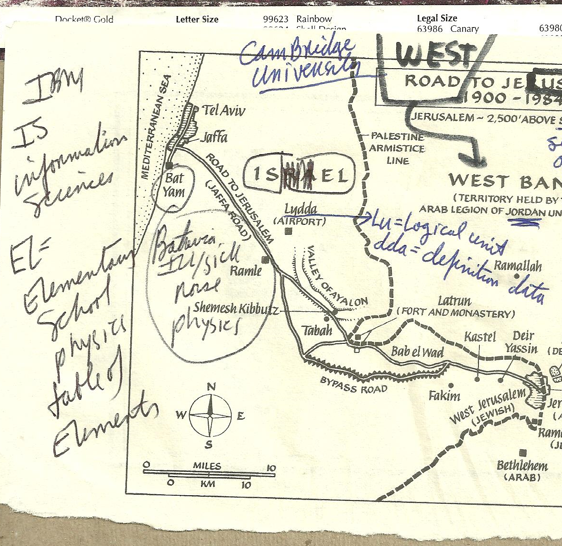 Docket® Gold
Letter Size
99623 Rainbow
Legal Size
63986 Canary
CamBridge
University
WEST
ROAD TO JERUS
1900 - 1984
JERUSALEM ~ 2,500' ABOVE S
IBM
IS
information
Sciences
EL=
Elementary
School
physics
table of
Elements
MEDITERRANEAN SEA
Tel Aviv
Jaffa
Bat
Yam
ROAD TO JERUSALEM
(JAFFA ROAD)
ISRAEL
PALESTINE
ARMISTICE
LINE
WEST BAN
(TERRITORY HELD BY
ARAB LEGION OF JORDAN UN
Lydda
(AIRPORT)
Lu=Logical unit
dda=definition data
Ramallah
Batavia
Ill/sick
noise
physics
Ramle
VALLEY OF AYALON
Shemesh Kibbutz
Tabah
Latrun
(FORT AND MONASTERY)
Bab el wad
Kastel
Deir
Yassin
BYPASS ROAD
Fakim
West Jerusalem
(JEWISH)
Jer
Rama
Bethlehem
(ARAB)
N
W E
S
MILES
0 10
0 KM 10